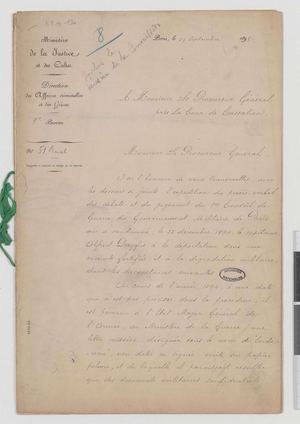 8
Ministère
de la Justice
et des Cultes
Direction
des Affaires criminelles
et des Grâces
1er Bureau
Paris, le 27 Septembre 189
A Monsieur le Procureur Général
près la Cour de Cassation
Monsieur le Procureur Général,
J'ai l'honneur de vous transmettre, avec
les dossiers ci-joints, l'expédition du procès-verbal
des débats et du jugement du 1er Conseil de
Guerre du Gouvernement Militaire de Paris
qui a condamné, le 22 décembre 1894, le capitaine
Alfred Dreyfus à la déportation dans une
enceinte fortifiée et à la dégradation militaire,
dans les circonstances suivantes
Au cours de l'année 1894, à une date
qui n'est pas précisée dans la procédure, il
est parvenu à l'Etat Major Général de
l'Armée, au Ministère de la Guerre, une
lettre missive, désignée sous le nom de "borde-
reau", non datée ni signée, écrite sur papier
pelure, et de laquelle il paraissait résulter
que des documents militaires confidentiels